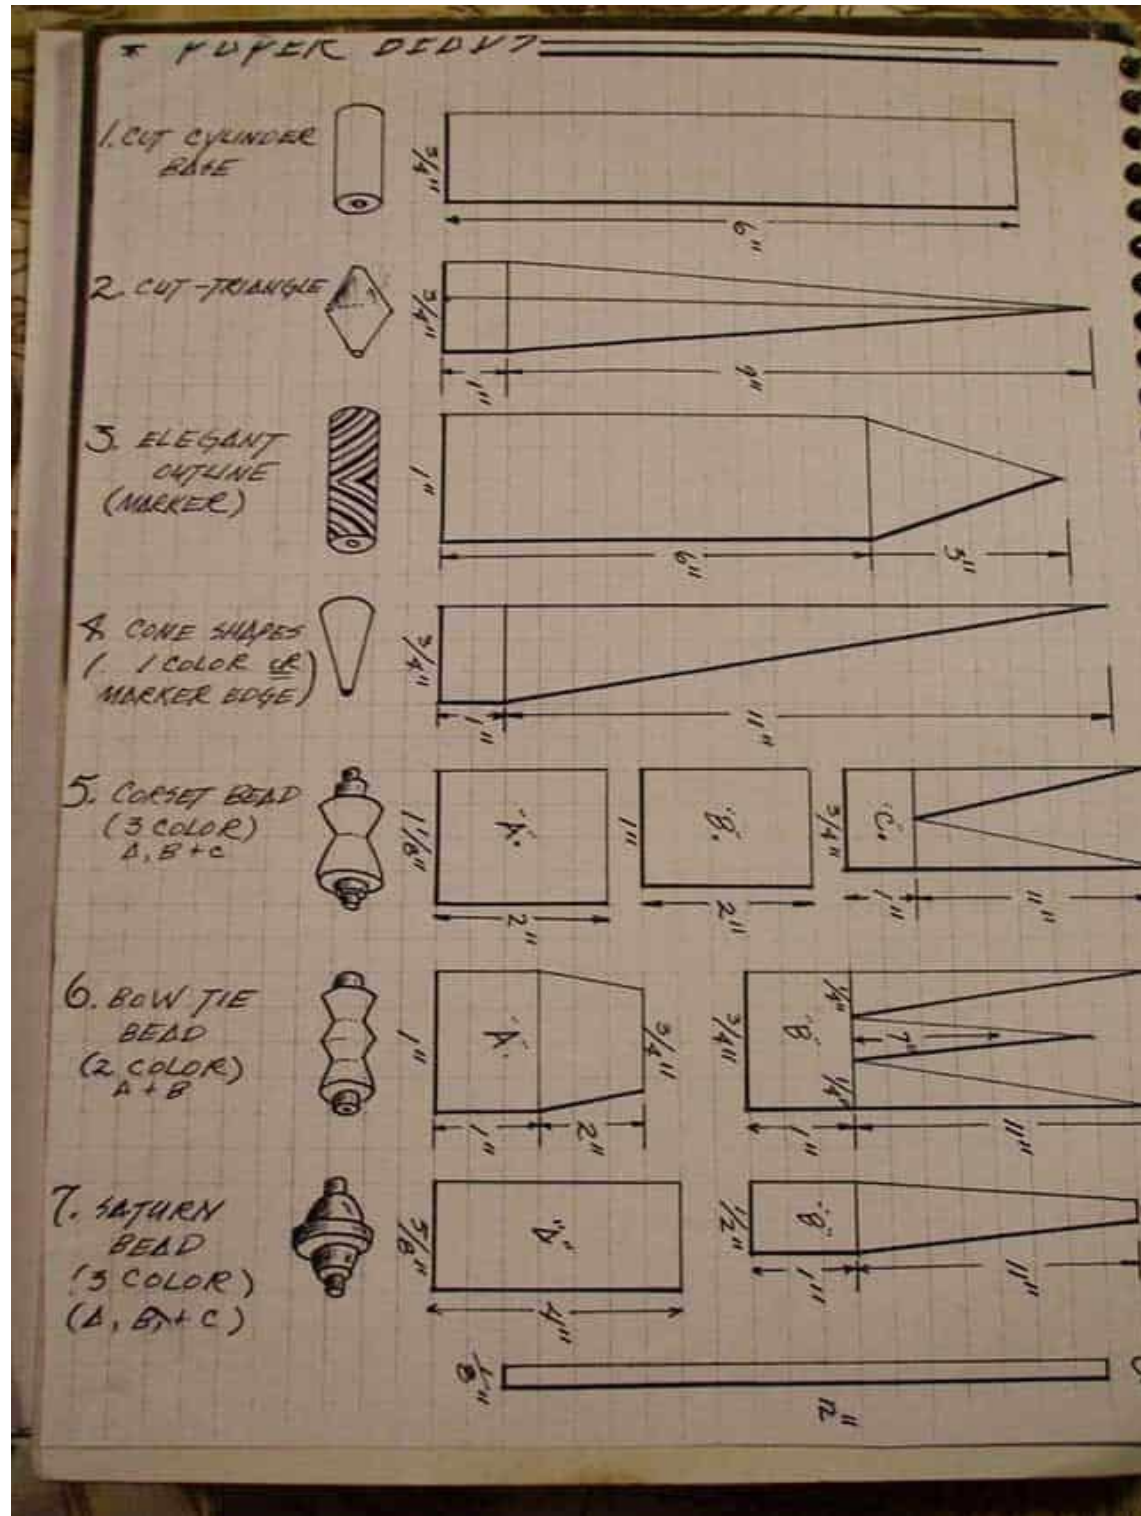 * PAPER BEADS
1. CUT CYLINDER
BASE
3/4"
6"
2. CUT-TRIANGLE
3/4"
1"
9"
3. ELEGANT
OUTLINE
(MARKER)
1"
6"
3"
4. CONE SHAPES
(1. 1 COLOR OR
MARKER EDGE)
3/4"
1"
11"
5. CORSET BEAD
(3 COLOR)
A, B + C
1 1/8"
"A"
2"
1"
"B"
2"
3/4"
"C"
1"
11"
6. BOW TIE
BEAD
(2 COLOR)
A + B
1"
"A"
3/4"
1"
2"
3/4"
"B"
1/4"
7"
1/4"
1"
11"
7. SATURN
BEAD
(3 COLOR)
(A, B, + C)
5/8"
"A"
4"
1/2"
"B"
1"
11"
1/8"
12"